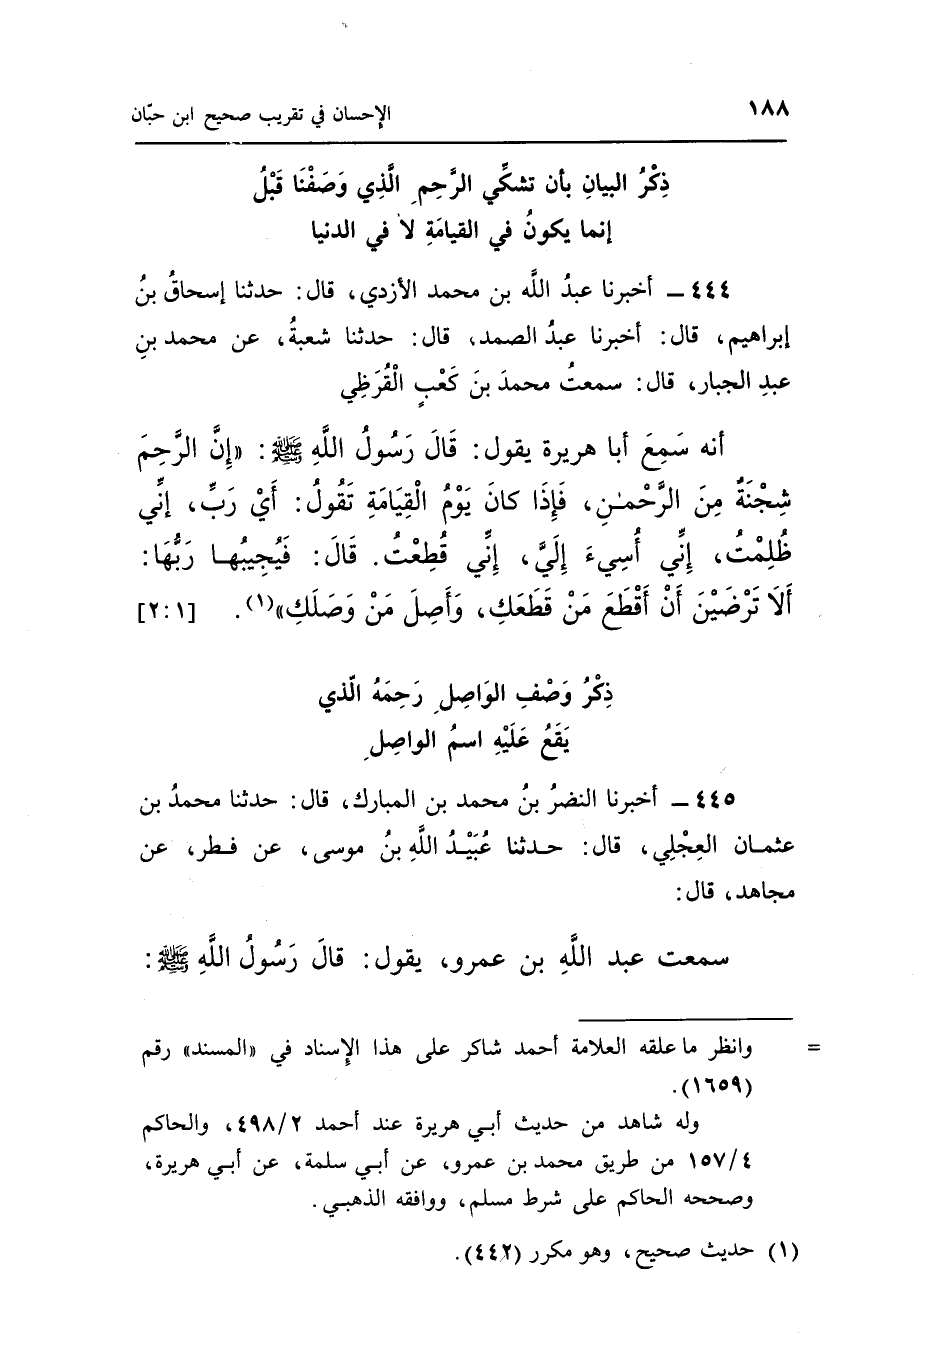 ١٨٨ الإحسان في تقريب صحيح ابن حبّان
ذِكْرُ البيانِ بأن تشكِّي الرَّحِمِ الَّذِي وَصَفْنَا قَبْلُ
إنما يكونُ في القيامَةِ لا في الدنيا
٤٤٤ ـ أخبرنا عبدُ اللَّه بن محمد الأزدي، قال: حدثنا إسحاقُ بنُ
إبراهيم، قال: أخبرنا عبدُ الصمد، قال: حدثنا شعبةُ، عن محمد بنِ
عبدِ الجبار، قال: سمعتُ محمدَ بنَ كَعْبٍ الْقُرَظِي
أنه سَمِعَ أبا هريرة يقول: قَالَ رَسُولُ اللَّهِ ﷺ: «إِنَّ الرَّحِمَ
شِجْنَةٌ مِنَ الرَّحْمـٰنِ، فَإِذَا كانَ يَوْمُ الْقِيَامَةِ تَقُولُ: أَيْ رَبِّ، إِنِّي
ظُلِمْتُ، إِنِّي أُسِيءَ إِلَيَّ، إِنِّي قُطِعْتُ. قَالَ: فَيُجِيبُهـا رَبُّهَا:
أَلَا تَرْضَيْنَ أَنْ أَقْطَعَ مَنْ قَطَعَكِ، وَأَصِلَ مَنْ وَصَلَكِ»(١). [٢:١]
ذِكْرُ وَصْفِ الوَاصِلِ رَحِمَهُ الّذي
يَقَعُ عَلَيْهِ اسمُ الواصِلِ
٤٤٥ ـ أخبرنا النضرُ بنُ محمد بن المبارك، قال: حدثنا محمدُ بن
عثمـان العِجْلِي، قال: حـدثنا عُبَيْـدُ اللَّهِ بنُ موسى، عن فـطر، عن
مجاهد، قال:
سمعت عبد اللَّهِ بن عمرو، يقول: قالَ رَسُولُ اللَّهِ ﷺ:
= وانظر ما علقه العلامة أحمد شاكر على هذا الإسناد في «المسند» رقم
(١٦٥٩).
وله شاهد من حديث أبـي هريرة عند أحمد ٤٩٨/٢، والحاكم
١٥٧/٤ من طريق محمد بن عمرو، عن أبـي سلمة، عن أبـي هريرة،
وصححه الحاكم على شرط مسلم، ووافقه الذهبـي.
(١) حديث صحيح، وهو مكرر (٤٤٢).